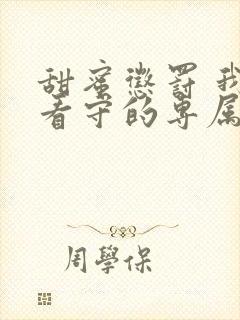 甜蜜懲罰我
看守的專屬
周學保